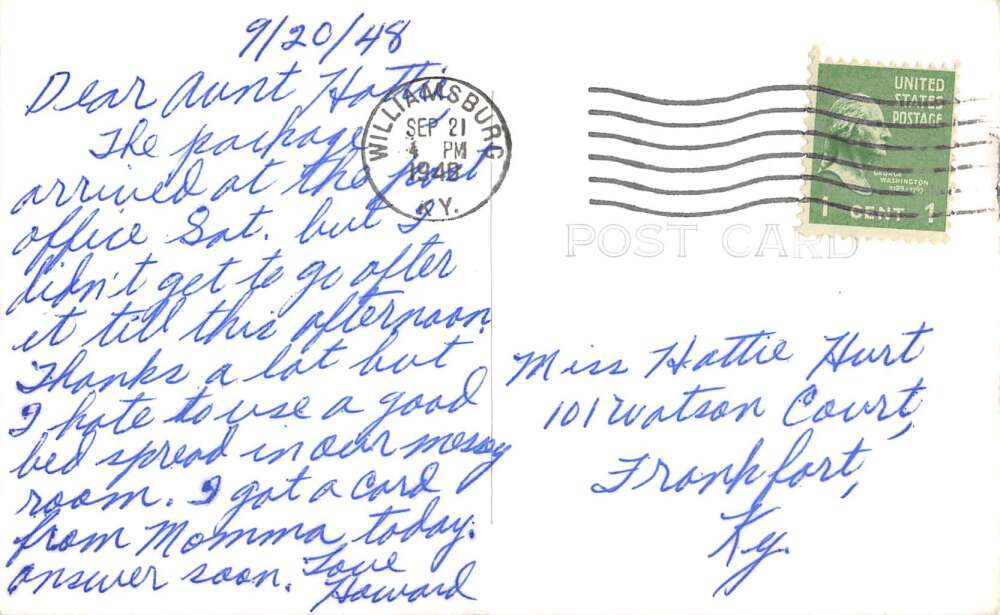 9/20/48
Dear Aunt Hattie,
The package
arrived at the post
office Sat. but I
didn't get to go after
it till this afternoon.
Thanks a lot but
I hate to use a good
bed spread in our messy
room. I got a card
from Momma today.
answer soon. Love
Howard
WILLIAMSBURG
SEP 21
4 PM
1948
KY.
UNITED
STATES
POSTAGE
GEORGE
WASHINGTON
1789-1797
1 CENT 1
POST CARD
Miss Hattie Hurt
101 Watson Court,
Frankfort,
Ky.